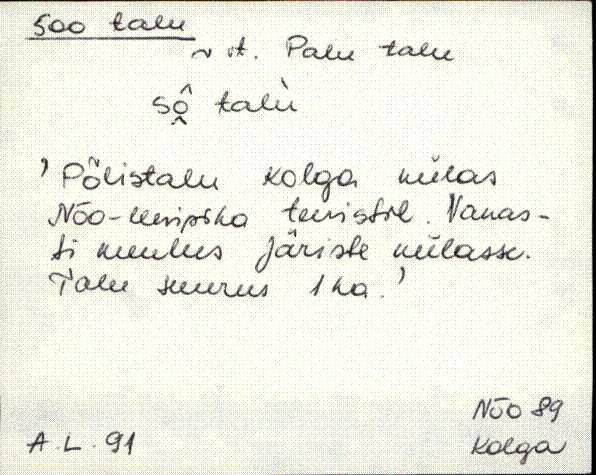 Soo talu
~ vt. Palu talu
sô̭ talù
'Põlistalu Kolga külas
Nõo-Meripõhja teeristil. Vanas-
ti kuulus Järiste külasse.
Talu suurus 1 ha.'
A.L. 91
Nõo 89
Kolga